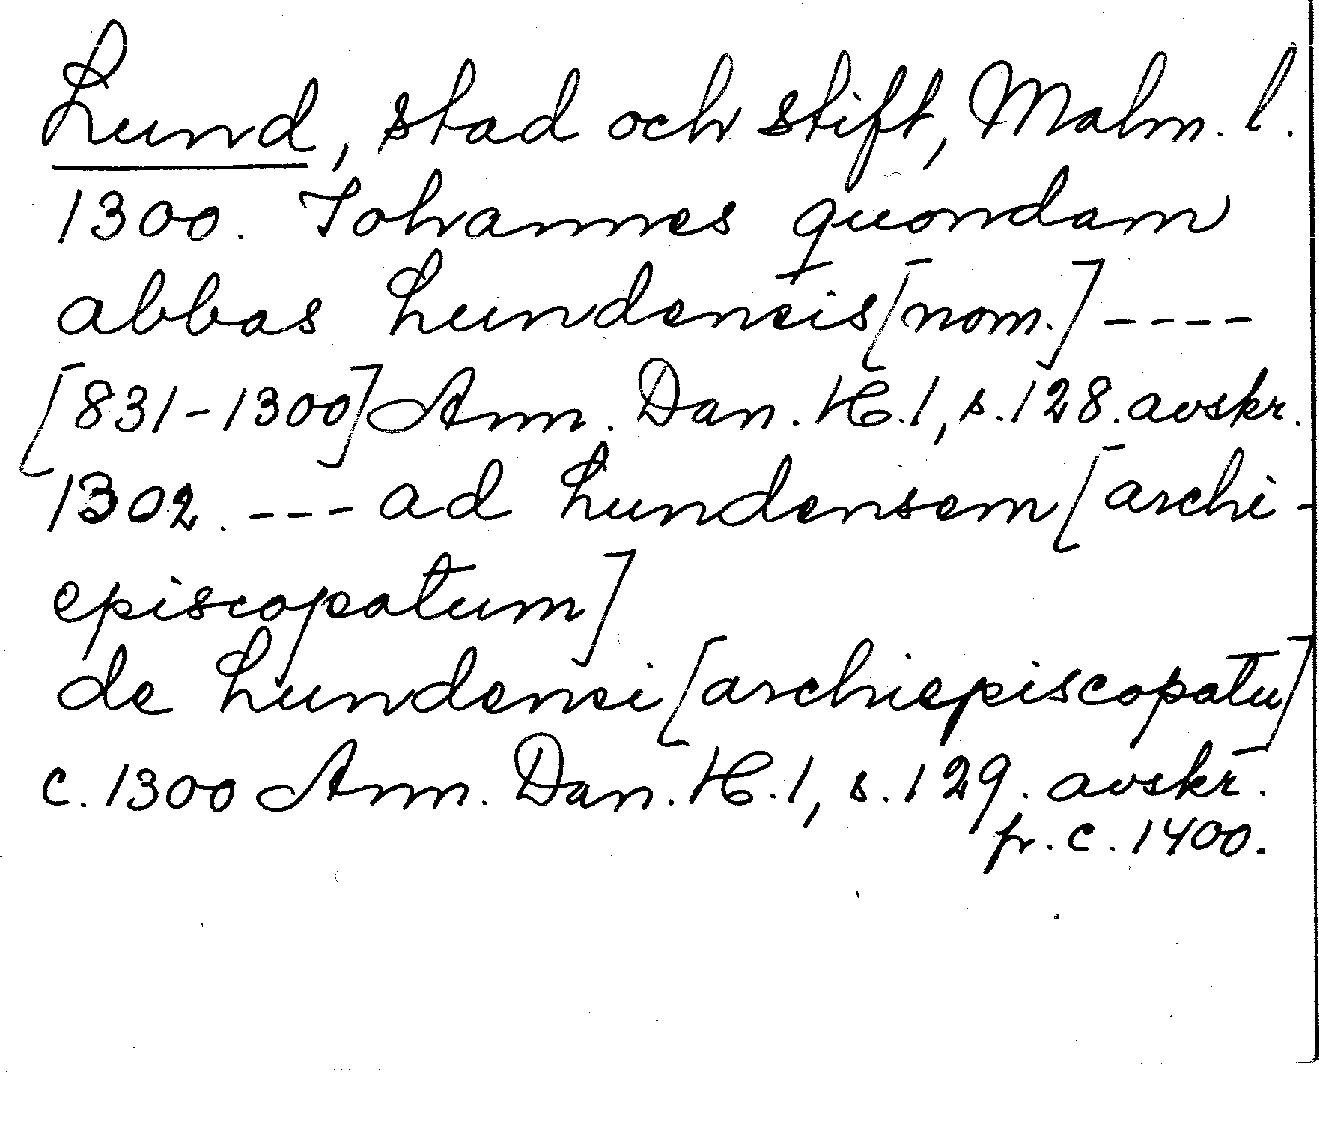 Lund, stad och stift, Malm. l.
1300. Johannes quondam
abbas Lundensis [nom.] ----
[831-1300] Ann. Dan. H. 1, s. 128. avskr.
1302. --- ad Lundensem [archi-
episcopatum]
de Lundensi [archiepiscopatu]
c. 1300 Ann. Dan. H. 1, s. 129. avskr.
fr. c. 1400.